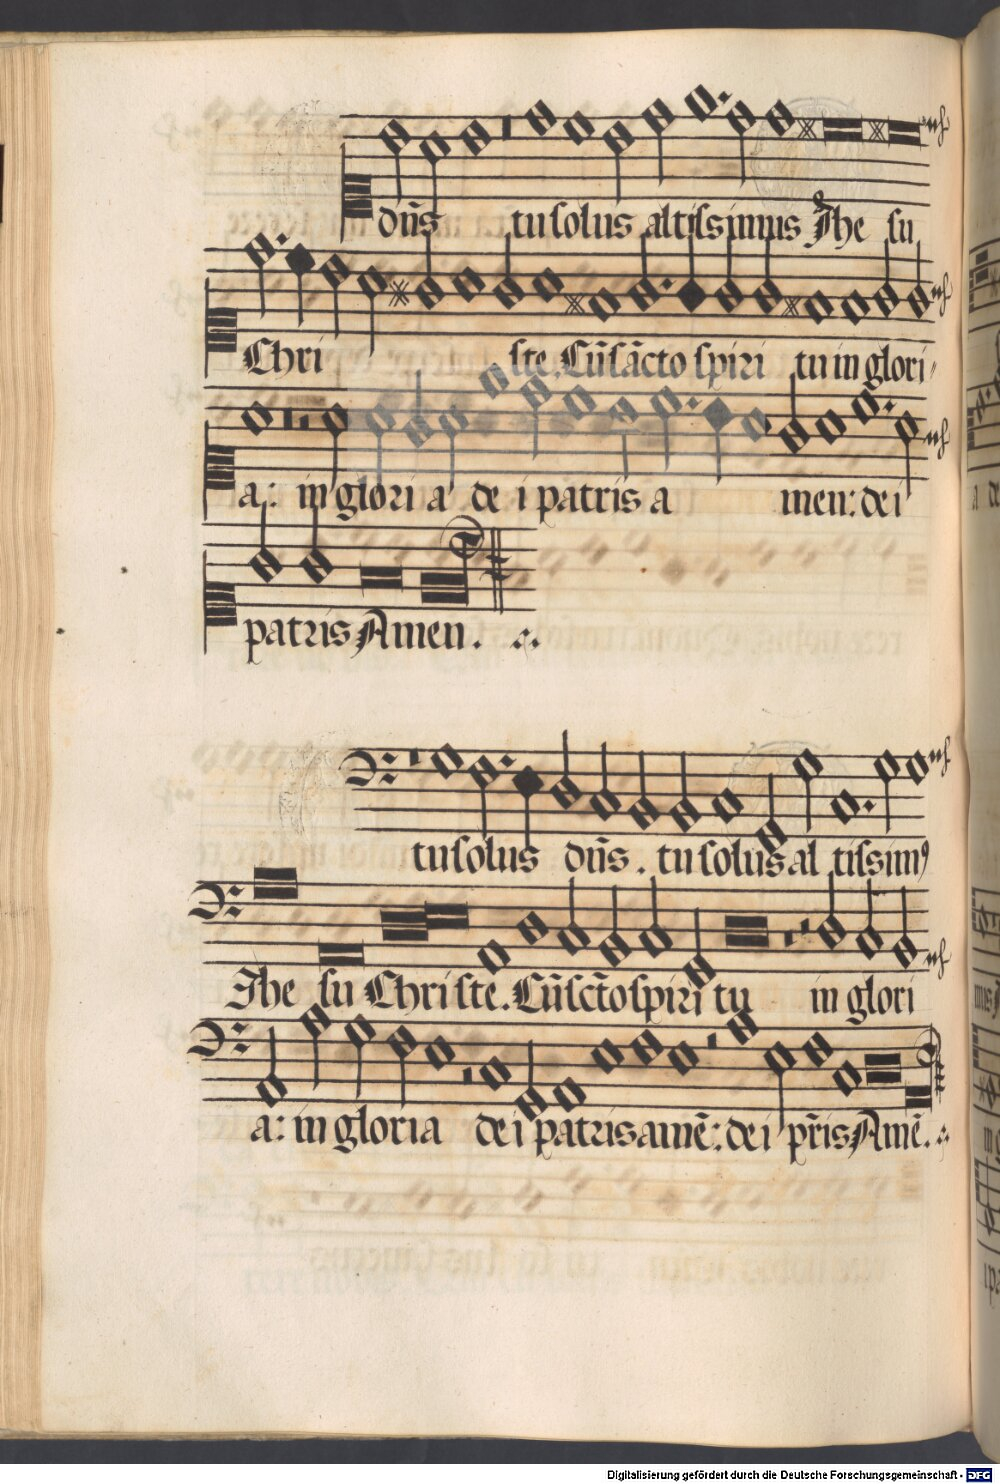 dn̄s tu solus altissimus Jhe su
Christe. Cū sācto spiri tu in glori-
a: in gloria dei patris a men: dei
patris Amen.
tu solus dn̄s. tu solus al tissimꝰ
Jhe su Christe. Cū scto spiri tu in glori
a: in gloria dei patris amē: dei pr̄is Amē.
Digitalisierung gefördert durch die Deutsche Forschungsgemeinschaft - DFG